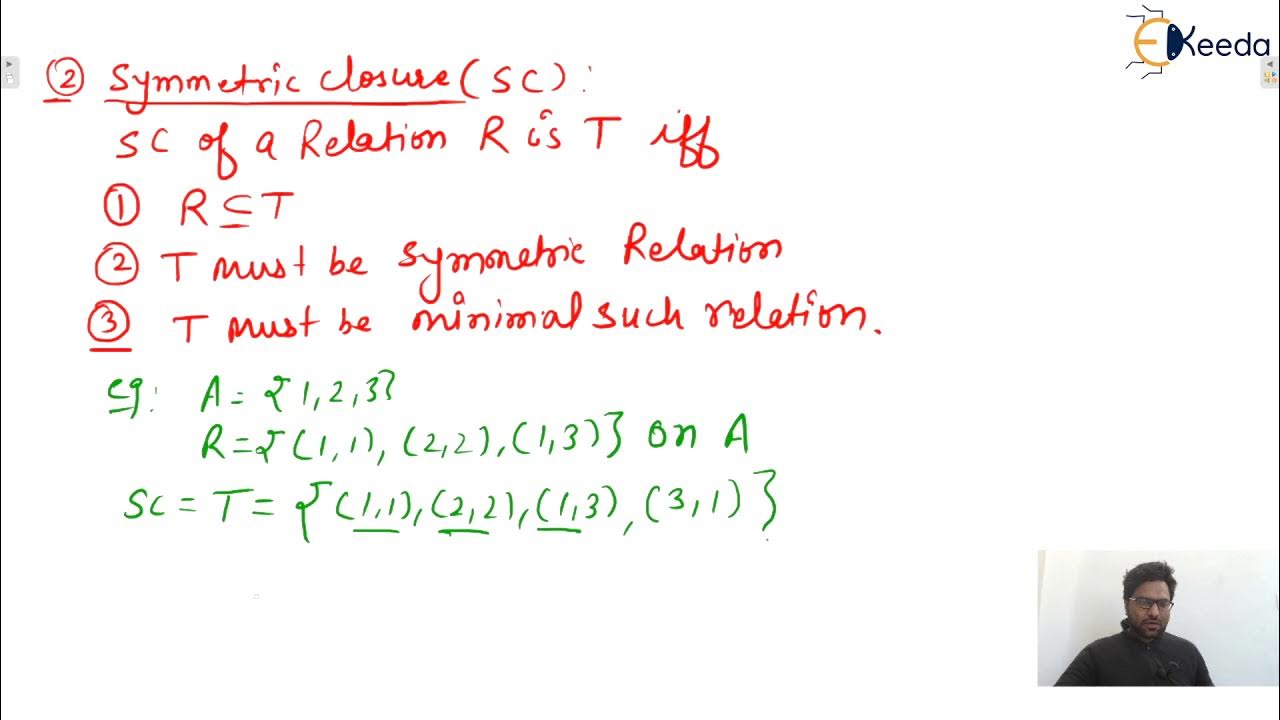 EKeeda
② Symmetric closure (SC):
SC of a Relation R is T iff
① R ⊆ T
② T must be symmetric Relation
③ T must be minimal such relation.
eg: A = {1, 2, 3}
R = {(1, 1), (2, 2), (1, 3)} on A
SC = T = {(1,1), (2,2), (1,3), (3,1)}